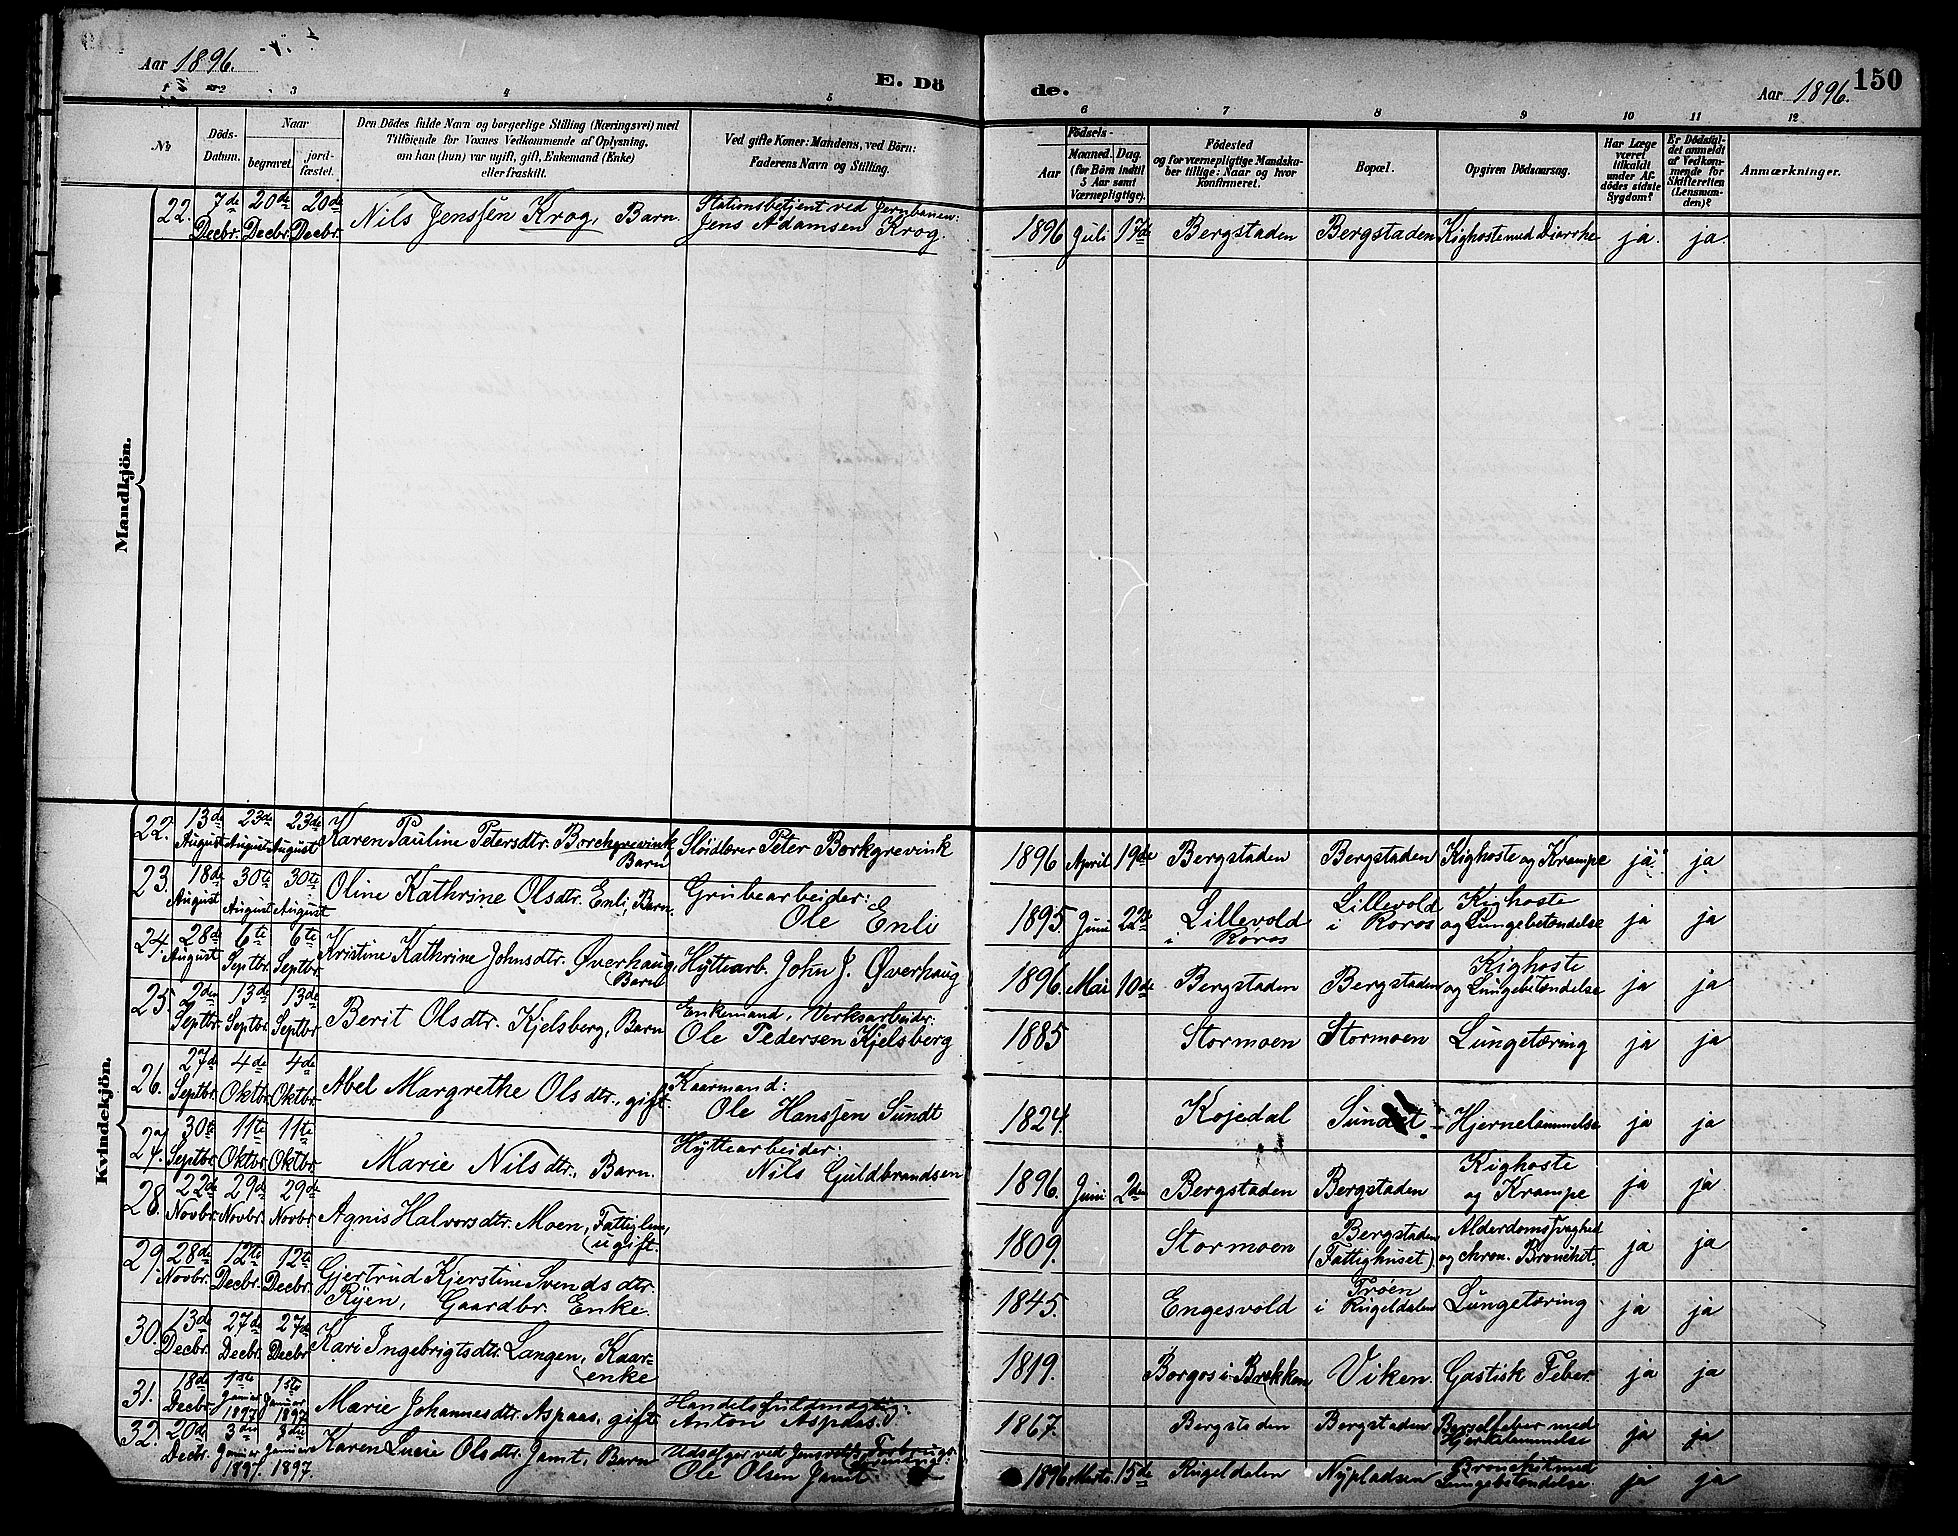 Aar 1896.
E. Dö
de.
Aar 1896.
150
3 4 5 6 7 8 9 10 11 12
No
Döds-Datum.
Naar begravet. jord-fæstet.
Den Dödes fulde Navn og borgerlige Stilling (Næringsvei) med
Tilföiende for Voxnes Vedkommende af Oplysning,
om han (hun) var ugift, gift, Enkemand (Enke)
eller fraskilt.
Ved gifte Koner: Mandens, ved Börn:
Faderens Navn og Stilling.
Födsels-
Aar
Maaned. Dag.
(for Börn indtil 5 Aar samt Værnepligtige).
Födested
og for værnepligtige Mandska-
ber tillige: Naar og hvor
Konfirmeret.
Bopæl.
Opgiven Dödsaarsag.
Har Læge været tilkaldt under Af-dödes sidste Sygdom?
Er Dödsfal-det anmeldt af Vedkom-mende for Skifteretten (Lensman-den)?
Anmærkninger.
Mandkjön.
22. 7de Decbr. 20de Decbr. 20de Decbr. Nils Jenssen Krog, Barn. Stationsbetjent ved Jernbanen: Jens Adamsen Krog. 1896 Juli 17de Bergstaden Bergstaden Kighoste med Diarrhe ja. ja.
Kvindekjön.
22. 13de August 23de August 23de August Karen Pauline Petersdtr. Borchgrevink Barn Slöidlærer Peter Borkgrevink 1896 April 19de Bergstaden Bergstaden Kighoste og Krampe ja ja
23. 18de August 30te August 30te August Oline Kathrine Olsdtr. Enli, Barn. Grubearbeider: Ole Enli 1895 Juni 22de Lillevold i Røros Lillevold i Røros Kighoste og Lungebetændelse ja ja
24. 28de August 6te Septbr. 6te Septbr. Kristine Kathrine Johnsdtr. Øverhaug, Barn Hyttearb. John J. Øverhaug 1896. Mai 10de Bergstaden Bergstaden Kighoste og Lungebetændelse ja ja
25. 2den Septbr. 13de Septbr. 13de Septbr. Berit Olsdtr. Kjelsberg, Barn Enkemand, Verksarbeider: Ole Pedersen Kjelsberg 1885 Stormoen Stormoen Lungetæring ja ja
26. 27de Septbr. 4de Oktbr. 4de Oktbr. Abel Margrethe Olsdtr., gift. Kaarmand: Ole Hanssen Sundt 1824. Kojedal Sundet Hjernelammelse ja ja
27. 30te Septbr. 11te Oktbr. 11te Oktbr. Marie Nilsdtr., Barn. Hyttearbeider: Nils Guldbrandsen 1896. Juni 2den Bergstaden Bergstaden Kighoste og Krampe ja ja
28. 22de Novbr. 29de Novbr. 29de Novbr. Agnis Halvorsdtr. Moen, Fattiglem, ugift. 1809. Stormoen Bergstaden (Fattighuset) Alderdomssvaghed og chron. Bronchit. ja ja
29. 28de Novbr. 12te Decbr. 12te Decbr. Gjertrud Kjerstine Svendsdtr. Ryen, Gaardbr. Enke. 1845. Engesvold Trøen i Rugeldalen Lungetæring ja ja
30. 13de Decbr. 27de Decbr. 27de Decbr. Kari Ingebrigtsdtr. Langen, Kaar-enke 1819. Borgos i Brekken Viken. Gastisk Feber ja ja
31. 18de Decbr. 1ste Januar 1897 1ste Januar 1897. Marie Johannesdtr. Aspaas, gift Handelsfuldmægtig: Anton Aspaas. 1867. Bergstaden Bergstaden Barselfeber med Hjertelammelse ja ja
32. 20de Decbr. 3die Januar 1897. 3die Januar 1897. Karen Lucie Olsdtr. Jamt, Barn Udsalger ved Forbrugs: Ole Olsen Jamt. 1896 Marts 15de Rugeldalen Nypladsen Bronchit med Lungebetændelse ja ja